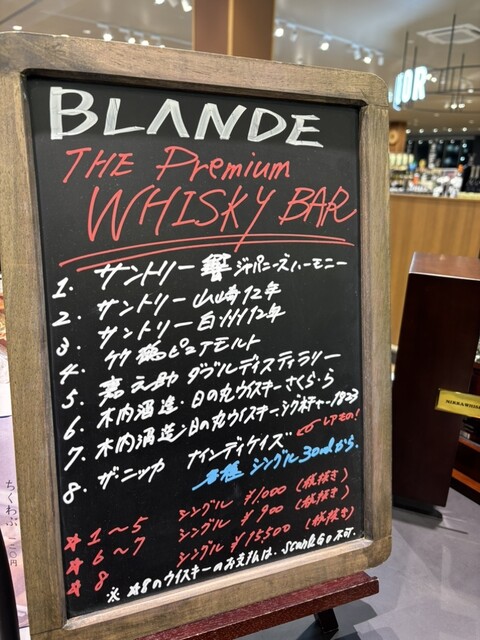 BLANDE
THE Premium
WHISKY BAR
1. サントリー 響 ジャパニーズハーモニー
2. サントリー 山崎12年
3. サントリー 白州12年
4. 竹鶴ピュアモルト
5. 嘉之助 ダブルディスティラリー
6. 木内酒造・日の丸ウイスキーさくら
7. 木内酒造・日の丸ウイスキーシグネチャー1823
8. ザ・ニッカ ナインディケイズ レアもの!
各種 シングル 30mlから.
☆1～5 シングル ¥1,000 (税抜き)
☆6～7 シングル ¥900 (税抜き)
☆8 シングル ¥15,500 (税抜き)
※ ☆8のウイスキーのお支払は、Scan&Go不可.
ちくわぶ
LOR